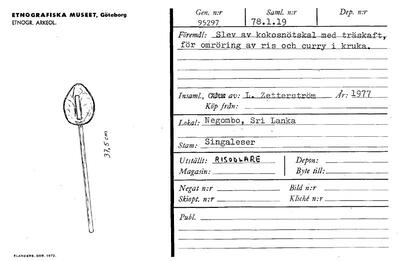 ETNOGRAFISKA MUSEET, Göteborg
ETNOGR. ARKEOL.
37,5 cm
Gen. n:r 95297
Saml. n:r 78.1.19
Dep. n:r
Föremål: Slev av kokosnötskal med träskaft,
för omröring av ris och curry i kruka.
Insaml, av: L. Zetterström År: 1977
Köp från:
Lokal: Negombo, Sri Lanka
Stam: Singaleser
Utställt: RISODLARE Depon:
Magasin: Byte till:
Negat n:r Bild n:r
Skiopt. n:r Klisché n:r
Publ.
1972.